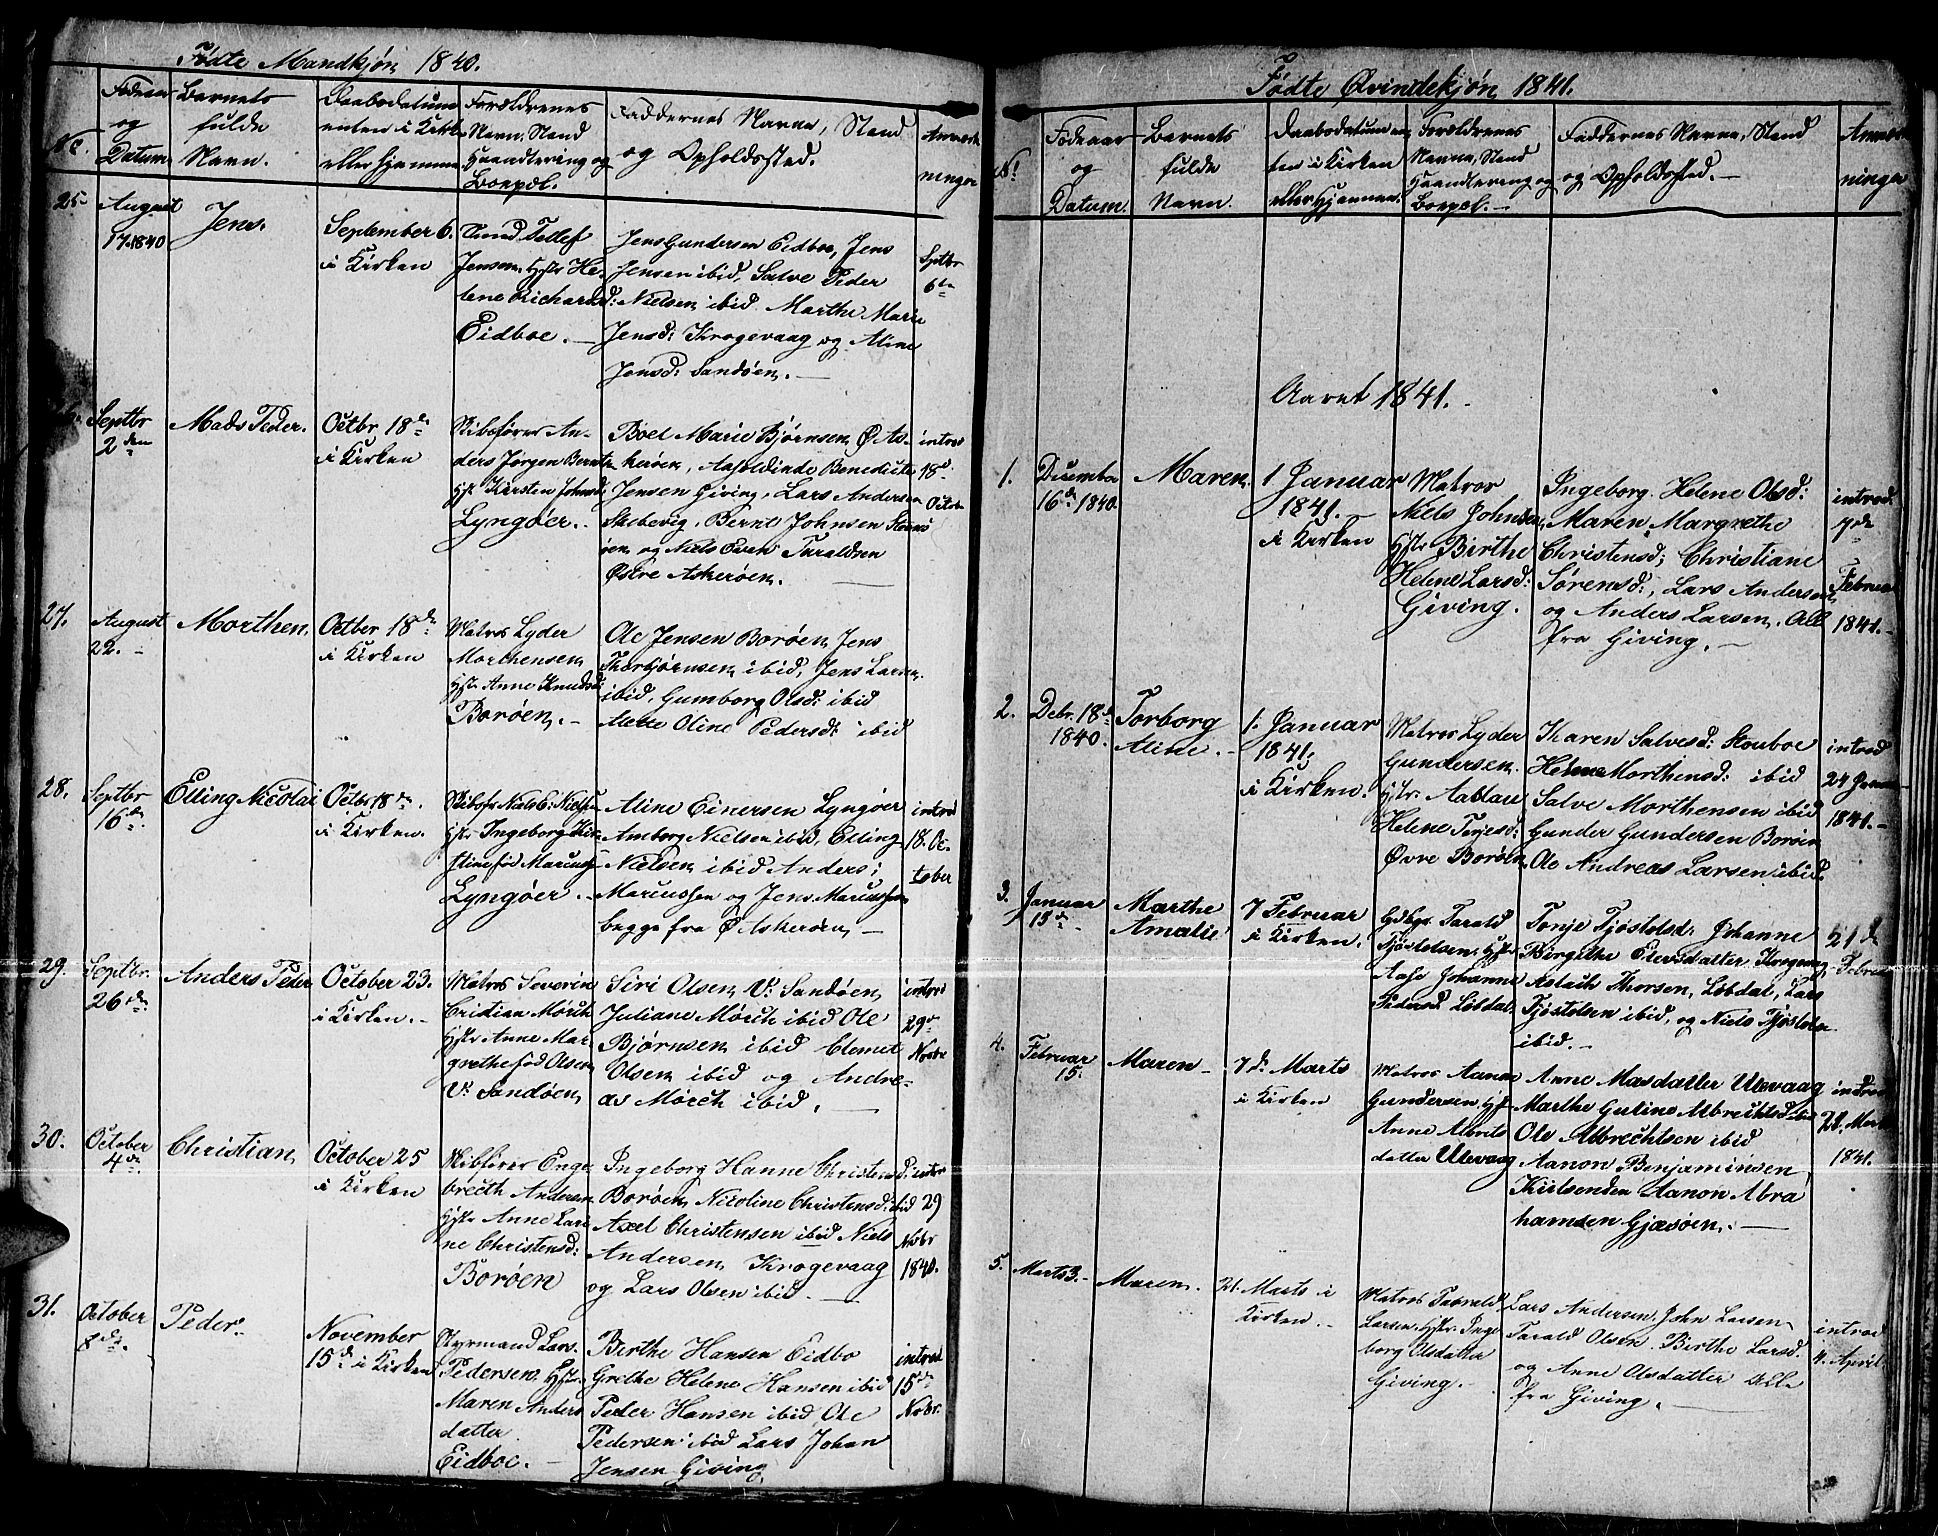 Fødte Mandkjøn 1840.
No.
Fødeaar
og
Datum.
Barnets
fulde
Navn.
Daabsdatum
enten i Kirk
eller Hjemme
Forældrenes
Navn, Stand
Haandtering og
Boepæl.
Faddernes Navne, Stand
og Opholdssted.
Anmærk
ninger
25.
August
17. 1840
Jens.
September 6.
i Kirken
Tellef
Jensen Hstr He-
lene Richardsd:
Eidboe.
Jens Gundersen Eidboe, Jens
Jensen ibid, Salve Peder
Nielsen ibid Marthe Marie
Jensd: Krogevaag og Aline
Jensd: Sandøen.
Septbr
6te
Septbr
2den
Mads Peder.
Octbr 18de
i Kirken
Skibsfører An-
ders Jørgen Berntsen
Hstr Kirsten Johnsd:
Lyngøer.
Boel Marie Bjørnsen Ø As-
kerøen, Benedicte
Jensen Giving, Lars Andersen
Skebevig, Bernt Johnsen
øen og Niels Even Taraldsen
Østre Askerøen.
introd
18d.
Octob
27.
August
22.
Morthen.
Octbr 18de
i Kirken
Matros Lyder
Morthensen
Hstr Anne Knudsd:
Borøen.
Ole Jensen Borøen, Jens
Thorbjørnsen ibid, Jens Larsen
ibid, Gumborg Olsd: ibid
Mette Oline Pedersd: ibid
28.
Septbr
16de
Elling Nicolai
Octbr 18de
i Kirken.
Skibsfr Niels E: Nielsen
Hstr Ingeborg Kir-
stine fød Marcussen
Lyngøer.
Aline Einersen Lyngøer
Amborg Nielsen ibid, Elling
Nielsen ibid Anders
Marcussen og Jens Marcussen
begge fra Ø Askerøen
introd
18. Oc-
tober
29.
Septbr.
26de
Anders Peder
October 23.
i Kirken.
Matros Severin
Cristian Mørch
Hstr Anne Mar
grethe fød Olsen
V: Sandøen
Siri Olsen V: Sandøen
Juliane Mørch ibid Ole
Bjørnsen ibid Clemet
Olsen ibid og Andre-
as Mørch ibid.
introd
29de
Novbr
30.
October
4de
Christian
October 25
i Kirken
Skibsfører Enge
brecth Andersen
Hstr Anne Lari
ne Christensd:
Borøen
Ingeborg Hanne Christensd:
Borøen Nicoline Christensd: ibid
Axel Christensen ibid Niels
Andersen Krogevaag
og Lars Olsen ibid.
intr
29
Novbr
1840.
31.
October
8de
Peder.
November
15de i Kirken
Styrmand Lars
Pedersen, Hstr.
Maren Anders
datter
Eidboe.
Birthe Hansen Eidbo
Grethe Helene Hansen ibid
Peder Hansen ibid, Ole
Pedersen ibid Lars Johan
Jensen Giving
introd
15de
Novbr.
Fødte Qvindekjøn 1841.
No
Fødeaar
og
Datum.
Barnets
fulde
Navn.
Daabsdatum en
ten i Kirken
eller Hjemme.
Forældrenes
Navne, Stand
Haandtering og
Boepæl.
Faddernes Navne, Stand
og Opholdssted.
Anmærk
ninger
Aaret 1841.
1.
Decembr
16de 1840.
Maren.
1 Januar
1841.
i Kirken
Matros
Niels Johnsen
Hstr Birthe
Helene Larsd:
Giving.
Ingeborg Helene Olsd:
Maren Margrethe
Christensd; Christiane
Sørensd:, Lars Andersen
og Anders Larsen. Alle
fra Giving.
introd
7de
Februar
1841.
2.
Debr. 18de
1840.
Torborg
Aline.
1. Januar
1841.
i Kirken.
Matros Lyder
Gundersen
Hstr.
Helene Terjesd:
Øvre Borøen
Karen Salvesd: Stouboe
Helene Morthensd: ibid
Salve Morthensen ibid
Gunder Gundersen Borøen
Ole Andreas Larsen ibid.
introd
24 Januar
1841.
3.
Januar
15de
Marthe
Amalie
7 Februar
i Kirken.
Gdbgr Tarald
Tjøstolsen, Hstr
Aase Johanne
Pedersd Løbdal
Tonje Tjøstolsd: Johanne
Birgithe Elevsdatter Krogevaag
Aslach Thorsen, Løbdal, Lars
Tjøstolsen ibid, og Niels Tjøstolsn
ibid.
21de
Februar
4.
Februar
15.
Maren
7d. Marts
i Kirken
Matros Aanon
Gundersen Hstr
Anne Albrits
datter Ulevaag
Anne Masdatter Ulevaag
Marthe Guline Albrechtsd ibid
Ole Albrechtsen ibid
Aanon Benjaminsen
Aanon Abra
hamsen Gjæsøen.
introd
28. Marts
1841.
5.
Marts 3.
Maren.
21. Marts i
Kirken.
Matros Tarald
Larsen, Hstr. Inge
borg Olsdatter
Giving.
Lars Andersen. John Larsen
Tarald Olsen. Birthe Larsd.
og Anne Olsdatter Alle
fra Giving.
introd
4. April